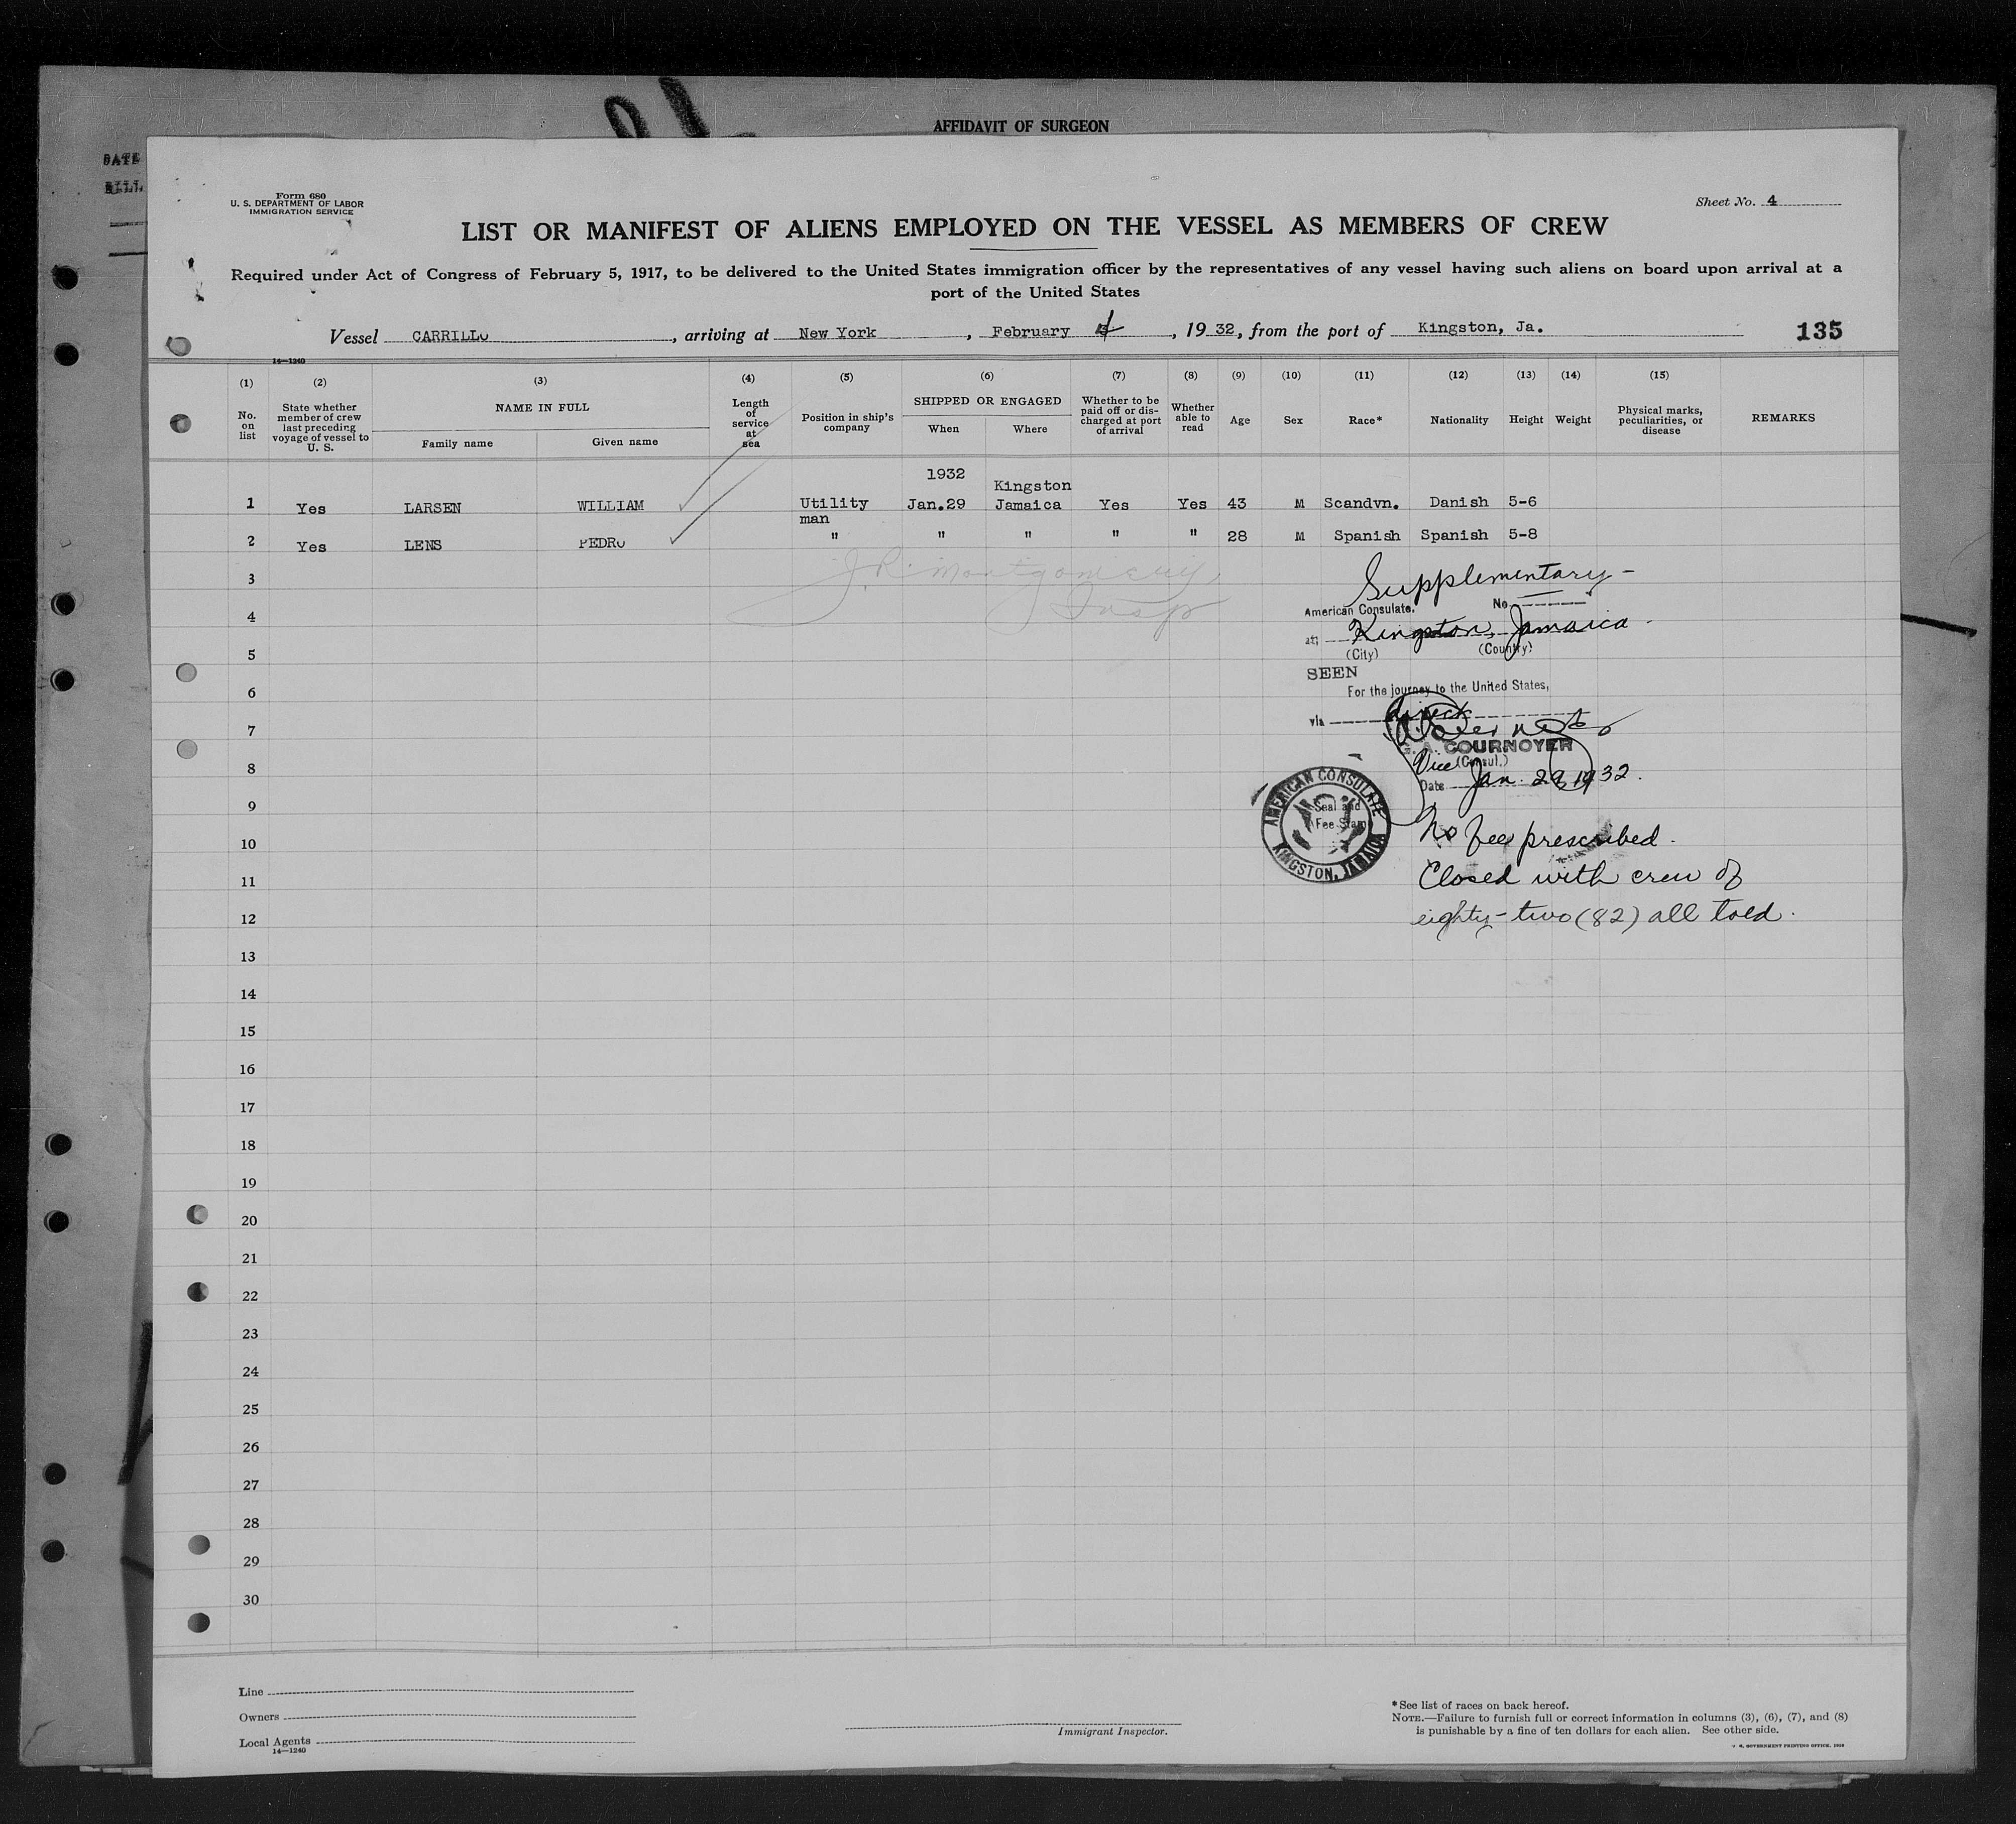 AFFIDAVIT OF SURGEON
DATE
Form 680
U. S. DEPARTMENT OF LABOR
IMMIGRATION SERVICE
Sheet No. 4
LIST OR MANIFEST OF ALIENS EMPLOYED ON THE VESSEL AS MEMBERS OF CREW
Required under Act of Congress of February 5, 1917, to be delivered to the United States immigration officer by the representatives of any vessel having such aliens on board upon arrival at a
port of the United States
Vessel CARRILLO, arriving at New York, February 4, 1932, from the port of Kingston, Ja.
135
14—1240
(1) (2) (3) (4) (5) (6) (7) (8) (9) (10) (11) (12) (13) (14) (15)
No. on list
State whether member of crew last preceding voyage of vessel to U. S.
NAME IN FULL
Family name
Given name
Length of service at sea
Position in ship's company
SHIPPED OR ENGAGED
When
Where
Whether to be paid off or discharged at port of arrival
Whether able to read
Age
Sex
Race*
Nationality
Height
Weight
Physical marks, peculiarities, or disease
REMARKS
1932
Kingston
1 Yes LARSEN WILLIAM Utility Jan.29 Jamaica Yes Yes 43 M Scandvn. Danish 5-6
man
2 Yes LENS PEDRO " " " " " 28 M Spanish Spanish 5-8
3
J.R. Montgomery
Insp
4
5
6
7
8
9
10
11
12
13
14
15
16
17
18
19
20
21
22
23
24
25
26
27
28
29
30
Supplementary -
American Consulate. No.
at: Kingston, Jamaica.
(City) (Country)
SEEN
For the journey to the United States,
via direct
G. A. COURNOYER
Vice (Consul.)
Date Jan. 29, 1932.
AMERICAN CONSULATE
KINGSTON, JAMAICA
Seal and
Fee Stamp
No fee prescribed.
Closed with crew of
eighty-two (82) all told.
Line
Owners
Local Agents
14—1240
Immigrant Inspector.
*See list of races on back hereof.
NOTE.—Failure to furnish full or correct information in columns (3), (6), (7), and (8)
is punishable by a fine of ten dollars for each alien. See other side.
GOVERNMENT PRINTING OFFICE